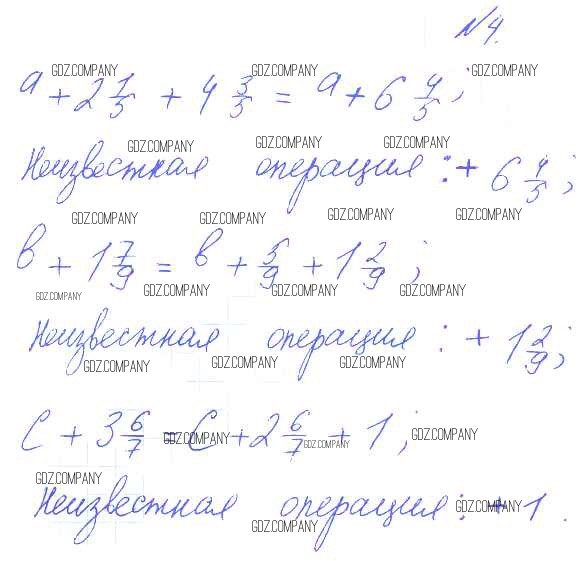 №4.
GDZ.COMPANY GDZ.COMPANY GDZ.COMPANY
a + 2 1/5 + 4 3/5 = a + 6 4/5;
GDZ.COMPANY GDZ.COMPANY GDZ.COMPANY
Неизвестная операция: + 6 4/5;
GDZ.COMPANY GDZ.COMPANY GDZ.COMPANY GDZ.COMPANY
b + 1 7/9 = b + 5/9 + 1 2/9;
GDZ.COMPANY GDZ.COMPANY GDZ.COMPANY GDZ.COMPANY
Неизвестная операция: + 1 2/9;
GDZ.COMPANY GDZ.COMPANY GDZ.COMPANY
c + 3 6/7 = c + 2 6/7 + 1;
GDZ.COMPANY GDZ.COMPANY GDZ.COMPANY
GDZ.COMPANY
Неизвестная операция: + 1.
GDZ.COMPANY GDZ.COMPANY